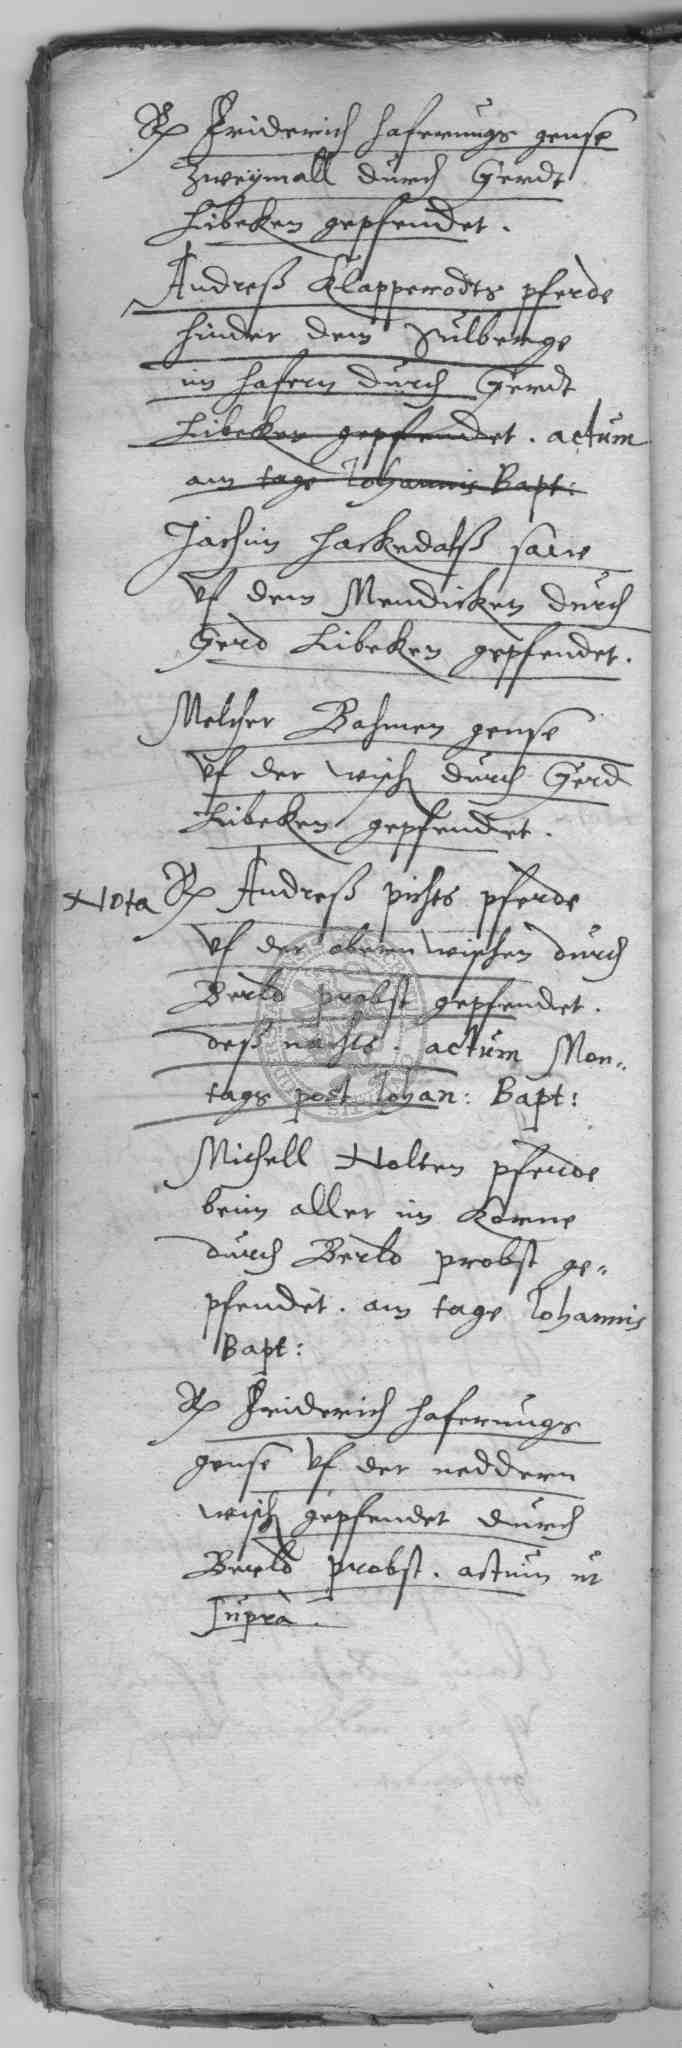 Rp Friderich Haferungs gense
zweymall durch Gerdt
Libeken gepfendet.
Andreß Klapperodts pferde
hinder dem Sulberge
im hafern durch Gerdt
Libeken gepfendet. actum
am tage Johannis Bapt:
Jachim Hackedalß saue
uf dem Mendicken durch
Gerd Libeken gepfendet.
Melcher Bahmen gense
uf der wisch durch Gerd
Libeken gepfendet.
Nota Rp Andreß pichts pferde
uf der obern wischen durch
Berld probst gepfendet.
deß nachts. actum Mon-
tags post Johan: Bapt:
Michell Nolten pferde
beim aller im Korne
durch Berld probst ge-
pfendet. am tage Johannis
Bapt:
Rp Friderich Haferungs
gense uf der neddern
wisch gepfendet durch
Berld probst. actum ut
suprà.